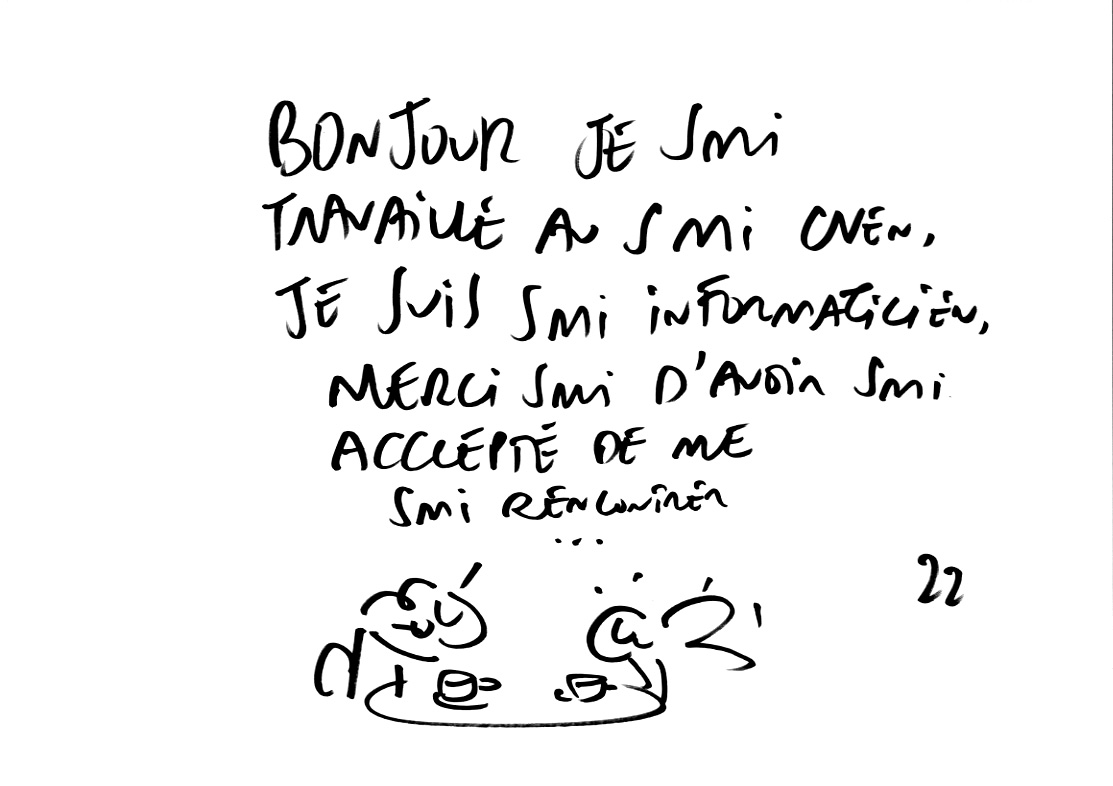 BONJOUR JE SMI
TRAVAILLE AU SMI CNEN,
JE SUIS SMI INFORMATICIEN,
MERCI SMI D'AVOIR SMI
ACCCEPTÉ DE ME
SMI RENCONTRER
...
22